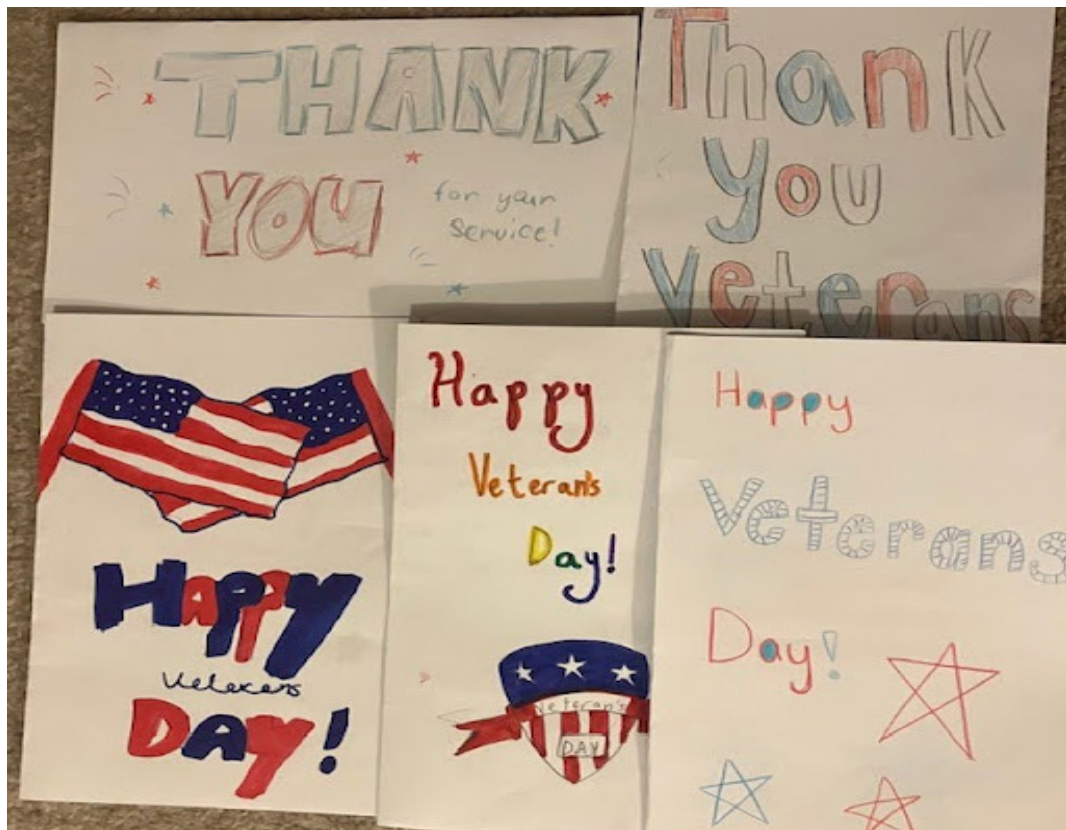 THANK
YOU
for your
service!
Thank
you
Veterans
Happy
Veterans
DAY!
Happy
Veteran's
Day!
Veteran's
DAY
Happy
Veterans
Day!